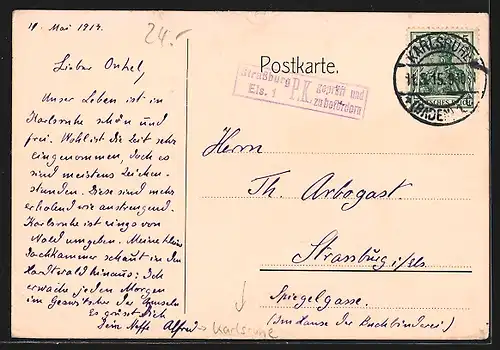 24.-
Lieber Onkel,
Unser Leben ist in
Karlsruhe schön und
frei. Wohl ist die Zeit sehr
eingenommen, doch es
sind meistens Zeichen-
stunden. Diese sind mehr
erholend wie anstrengend.
Karlsruhe ist rings von
Wald umgeben. Meine kleine
Dachkammer schaut in den
Hardtwald hinaus; Ich
erwache jeden Morgen
im Gezwitscher der Amseln
Es grüsst Dich
Dein Neffe Alfred
Karlsruhe
Postkarte.
Strassburg
Els. 1
P.K.
Geprüft und
zu befördern
KARLSRUHE
(BADEN)
Herrn
Th. Arbogast.
Strassburg i/Els.
Spiegelgasse.
(Im Hause der Buchbinderei)